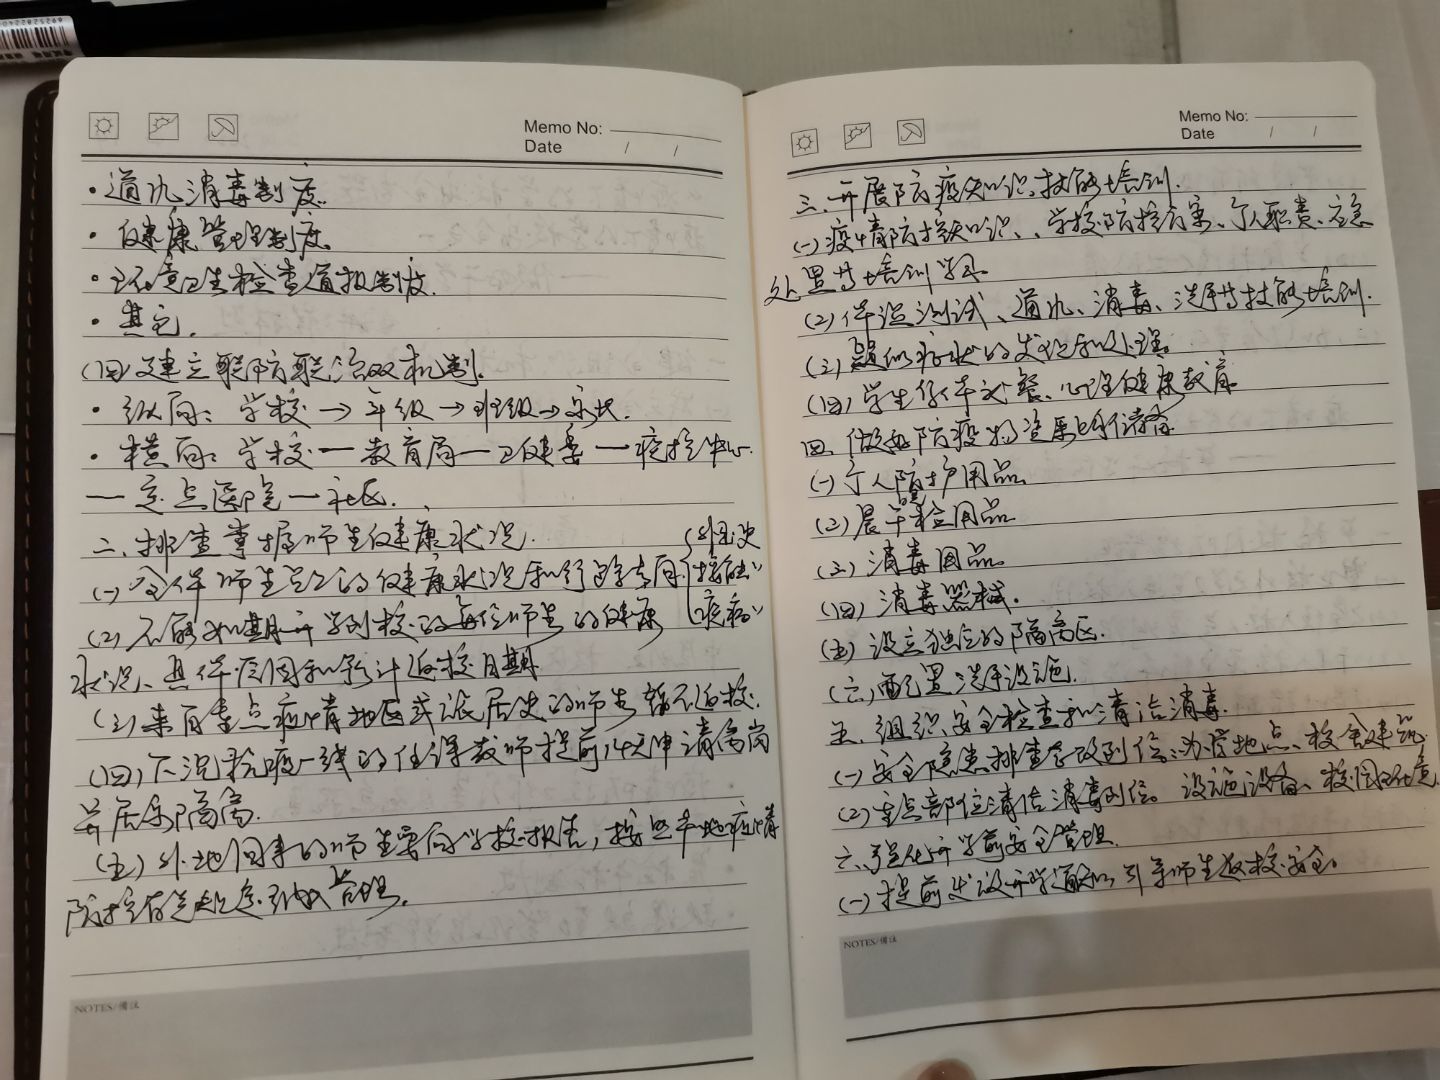 Memo No:
Date / /
·通风、消毒制度
·健康管理制度
·环境卫生检查通报制度.
·其它.
(四)建立联防联治双机制.
·纵向：学校→年级→班级→家长.
·横向：学校一教育局一卫健委一疾控中心
一定点医院一社区.
二、排查掌握师生健康状况.
(一)全体师生员工的健康状况和行踪去向
外出史
接触〃
疾病〃
(2)不能如期开学到校的每位师生的健康
状况、具体原因和预计返校日期
(三)来自重点疫情地区或旅居史的师生暂不返校.
(四)下沉抗疫一线的任课教师提前14天申请离岗
并居家隔离.
(五)外地回来的师生要向学校报告，按照本地疫情
防控有关规定 管理.
NOTES/備汶
Memo No:
Date / /
三、开展防疫知识、技能培训.
(一)疫情防控知识、学校防控方案、个人职责、应急
处置等培训学习
(2)体温测试、通风、消毒、洗手等技能培训.
(三)疑似症状的发现和处理。
(四)学生 心理健康教育
四、做好防疫物资 储备
(一)个人防护用品
(2)晨午晚检用品
(三)消毒用品
(四)消毒器械.
(五)设立独立的隔离区.
(六)配置洗手设施.
五、组织安全检查和清洁消毒.
(一)安全隐患排查整改到位：办学地点、校舍建筑
(2)重点部位清洁消毒到位。设施设备、校园环境
六、强化开学前安全管理.
(一)提前发放开学通知，引导师生返校安全。
NOTES/備汶